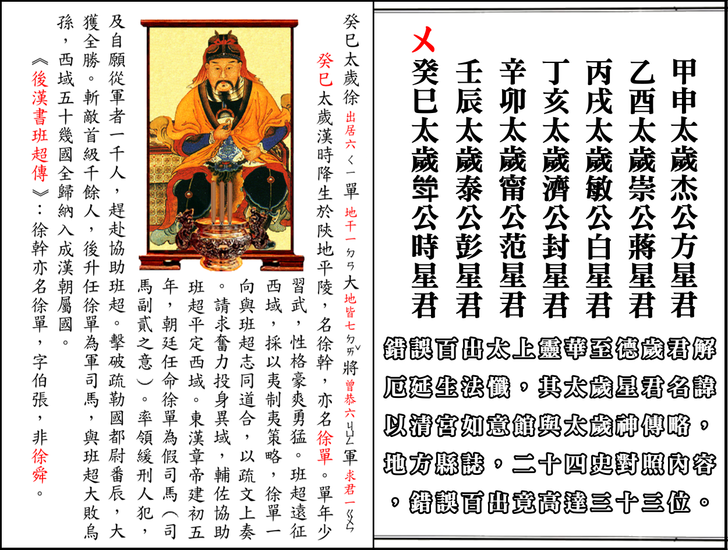 甲申太歲杰公方星君
乙酉太歲崇公蔣星君
丙戌太歲敏公白星君
丁亥太歲濟公封星君
辛卯太歲甯公范星君
壬辰太歲泰公彭星君
癸巳太歲公時星君
錯誤百出太上靈華至德歲君解
厄延生法懺，其太歲星君名諱
以清宮如意館與太歲神傳略，
地方縣誌，二十四史對照內容
，錯誤百出竟高達三十三位。
癸巳太歲徐 出居六 ㄑㄧ 單 地干一 ㄉㄢ 大 地皆七 ㄉㄞˇ 將 曾恭六 軍 求君一
癸巳太歲漢時降生於陝地平陵，名徐幹，亦名徐單。單年少
習武，性格豪爽勇猛。班超遠征
西域，採以夷制夷策略，徐單一
向與班超志同道合，以疏文上奏
。請求奮力投身異域，輔佐協助
班超平定西域。東漢章帝建初五
年，朝廷任命徐單為假司馬（司
馬副貳之意）。率領緩刑人犯，
及自願從軍者一千人，趕赴協助班超。擊破疏勒國都尉番辰，大
獲全勝。斬敵首級千餘人，後升任徐單為軍司馬，與班超大敗烏
孫，西域五十幾國全歸納入成漢朝屬國。
《後漢書班超傳》：徐幹亦名徐單，字伯張，非徐舜。